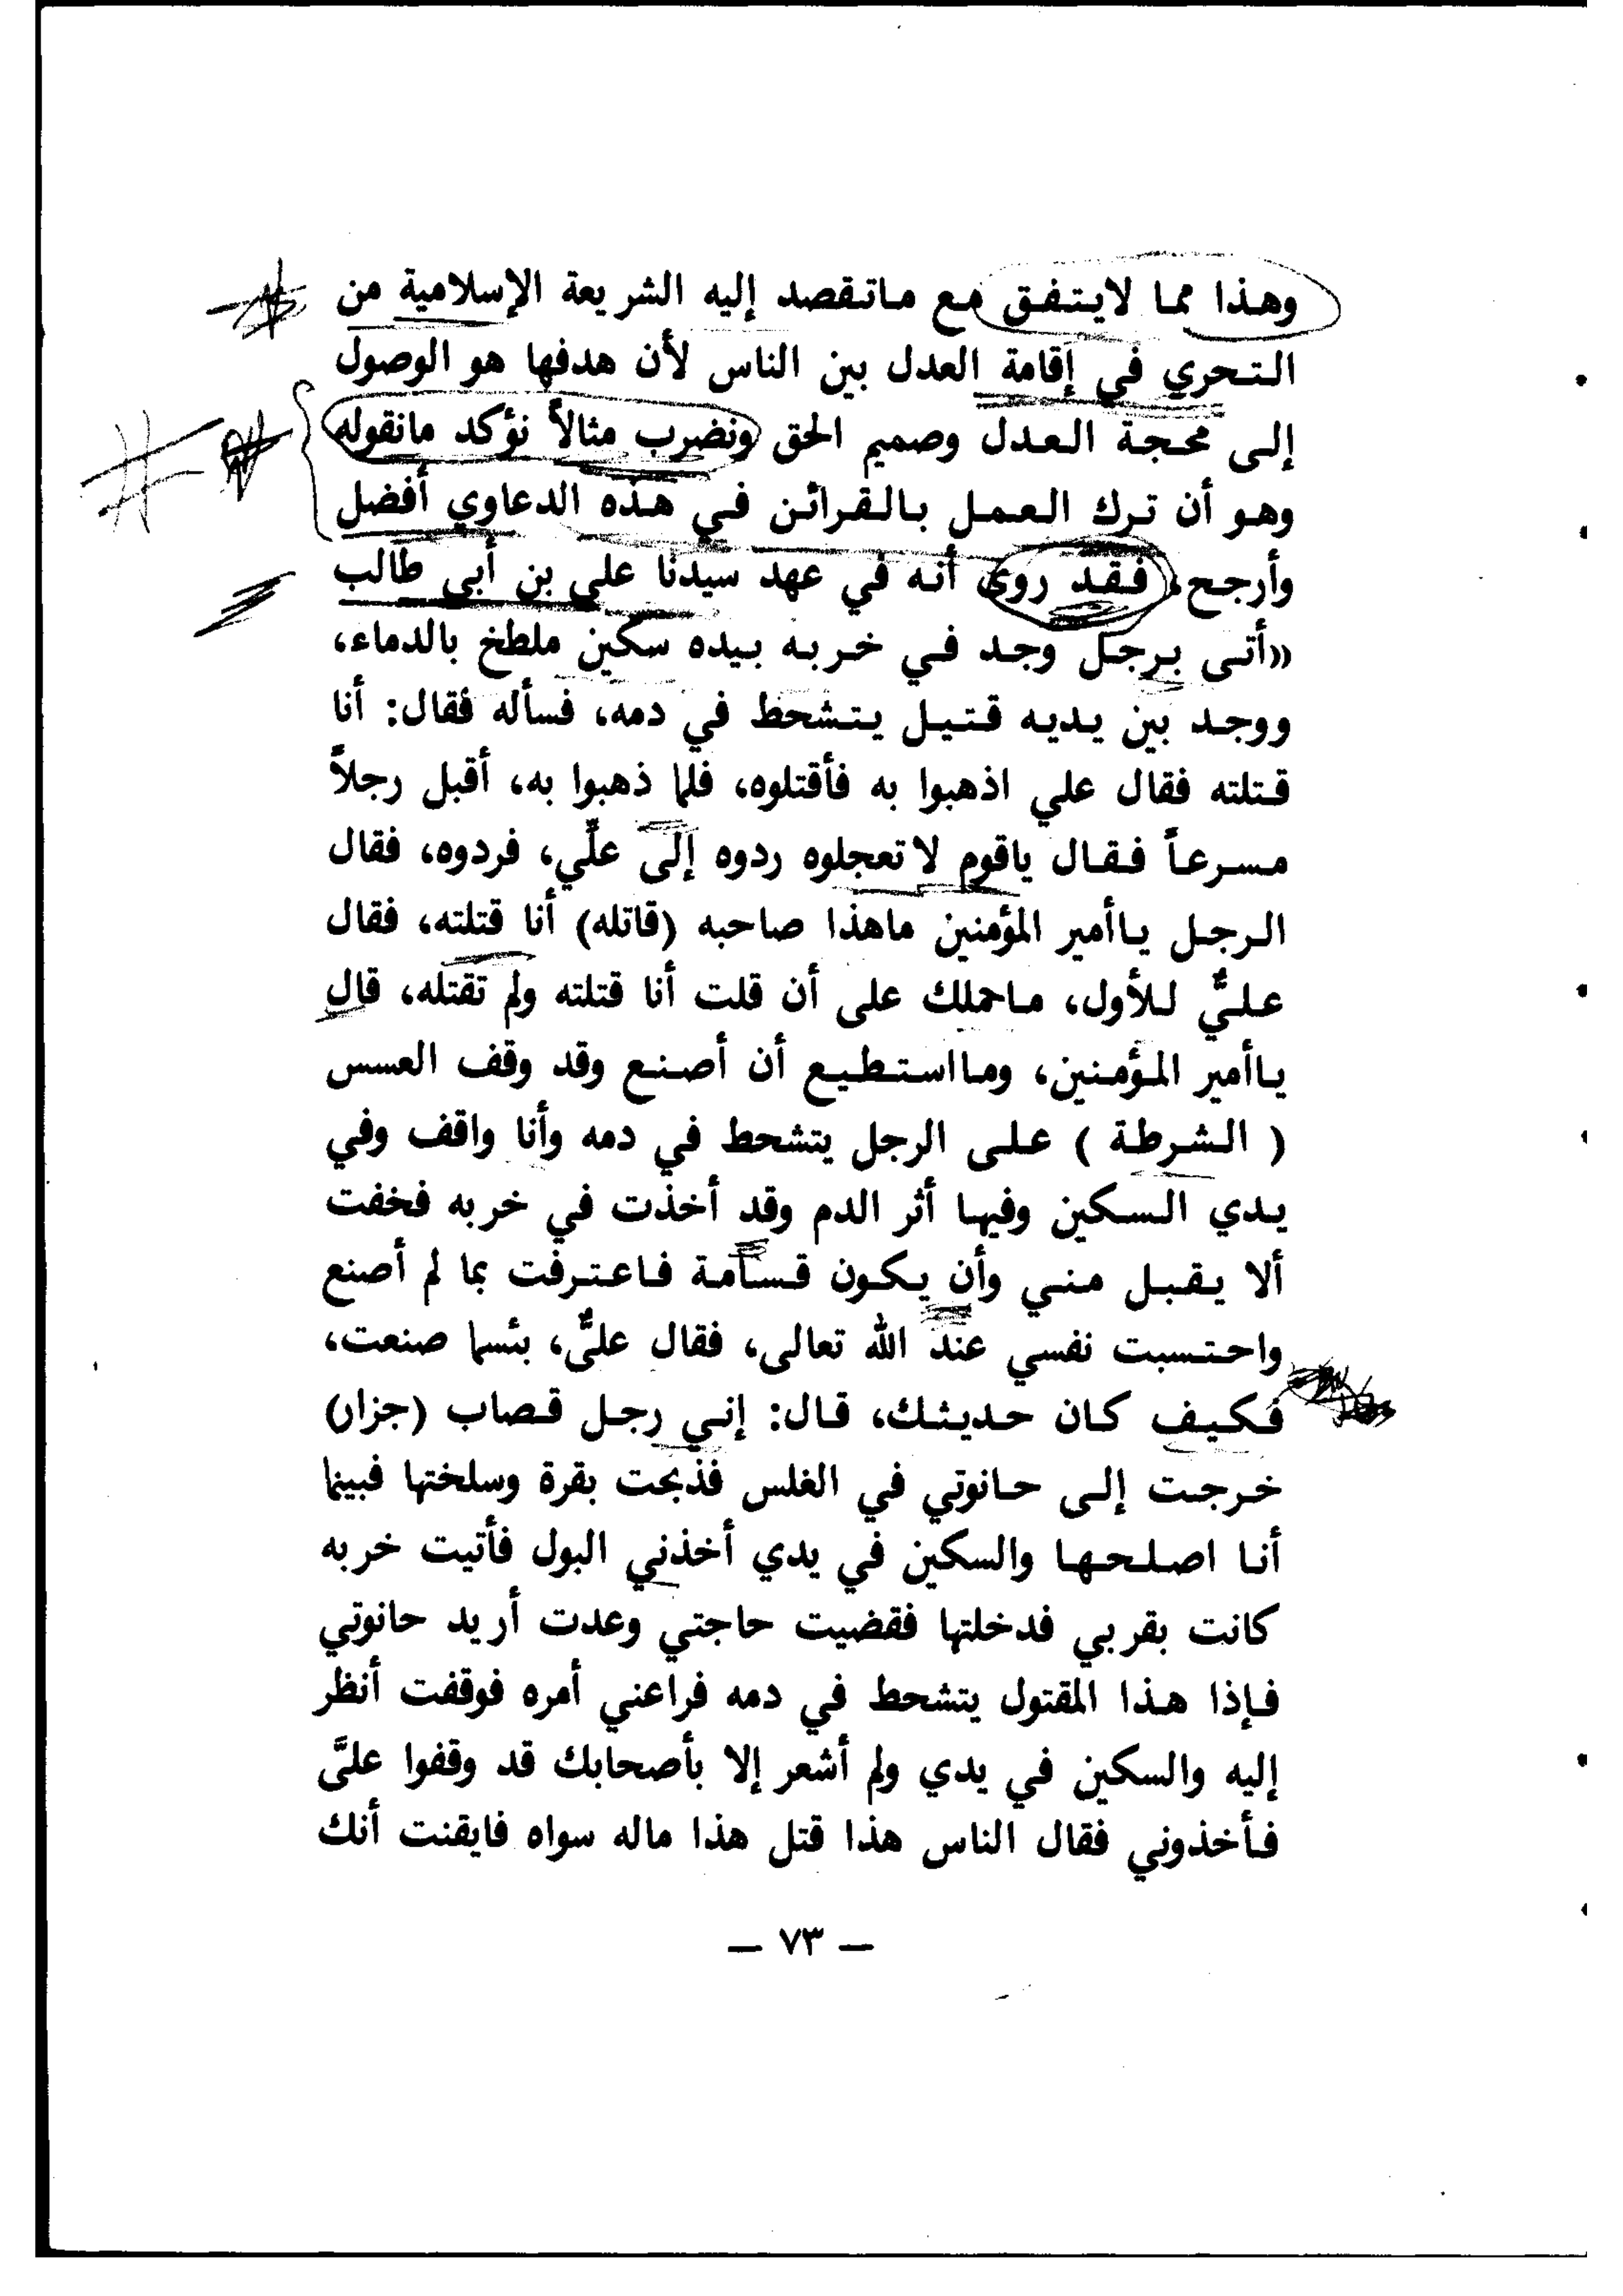 وهذا مما لايتفق مع ماتقصد إليه الشريعة الإسلامية من
التحري في إقامة العدل بين الناس لأن هدفها هو الوصول
إلى محجة العدل وصميم الحق ونضرب مثالاً نؤكد مانقوله
وهو أن ترك العمل بالقرائن في هذه الدعاوي أفضل
وأرجح، فقد روى أنه في عهد سيدنا علي بن أبي طالب
«أتى برجل وجد في خربه بيده سكين ملطخ بالدماء،
ووجد بين يديه قتيل يتشحط في دمه، فسأله فقال: أنا
قتلته فقال علي اذهبوا به فأقتلوه، فلما ذهبوا به، أقبل رجلاً
مسرعاً فقال ياقوم لا تعجلوه ردوه إلى علّي، فردوه، فقال
الرجل ياأمير المؤمنين ماهذا صاحبه (قاتله) أنا قتلته، فقال
عليٌّ للأول، ماحملك على أن قلت أنا قتلته ولم تقتله، قال
ياأمير المؤمنين، ومااستطيع أن أصنع وقد وقف العسس
( الشرطة ) على الرجل يتشحط في دمه وأنا واقف وفي
يدي السكين وفيها أثر الدم وقد أخذت في خربه فخفت
ألا يقبل مني وأن يكون قسامة فاعترفت بما لم أصنع
واحتسبت نفسي عند الله تعالى، فقال عليٌّ، بئسما صنعت،
فكيف كان حديثك، قال: إني رجل قصاب (جزار)
خرجت إلى حانوتي في الغلس فذبحت بقرة وسلختها فبينما
أنا اصلحها والسكين في يدي أخذني البول فأتيت خربه
كانت بقربي فدخلتها فقضيت حاجتي وعدت أريد حانوتي
فإذا هذا المقتول يتشحط في دمه فراعني أمره فوقفت أنظر
إليه والسكين في يدي ولم أشعر إلا بأصحابك قد وقفوا عليَّ
فأخذوني فقال الناس هذا قتل هذا ماله سواه فايقنت أنك
— ٧٣ —